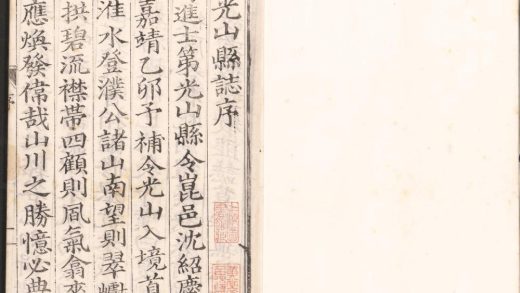 光山縣誌序
進士第光山縣令崑邑沈紹慶
嘉靖乙卯予補令光山入境首
淮水登濮公諸山南望則翠巘
拱碧流襟帶四顧則風氣翕來
應煥發偉哉山川之勝憶必典
序